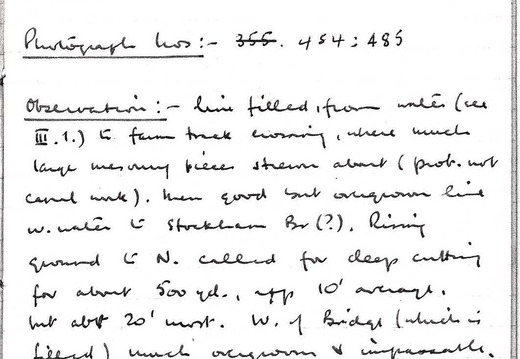 Photograph Nos:- 355. 454; 485
Observation:- line filled, from water (see
III.1.) to farm track crossing, where much
large masonry pieces strewn about (prob. not
canal work). Then good but overgrown line
w. water to Stockham Br (?). Rising
ground to N. called for deep cutting
for about 500 yd., app 10' average,
but abt 20' most. W. of Bridge (which is
filled) much overgrown & impassable.